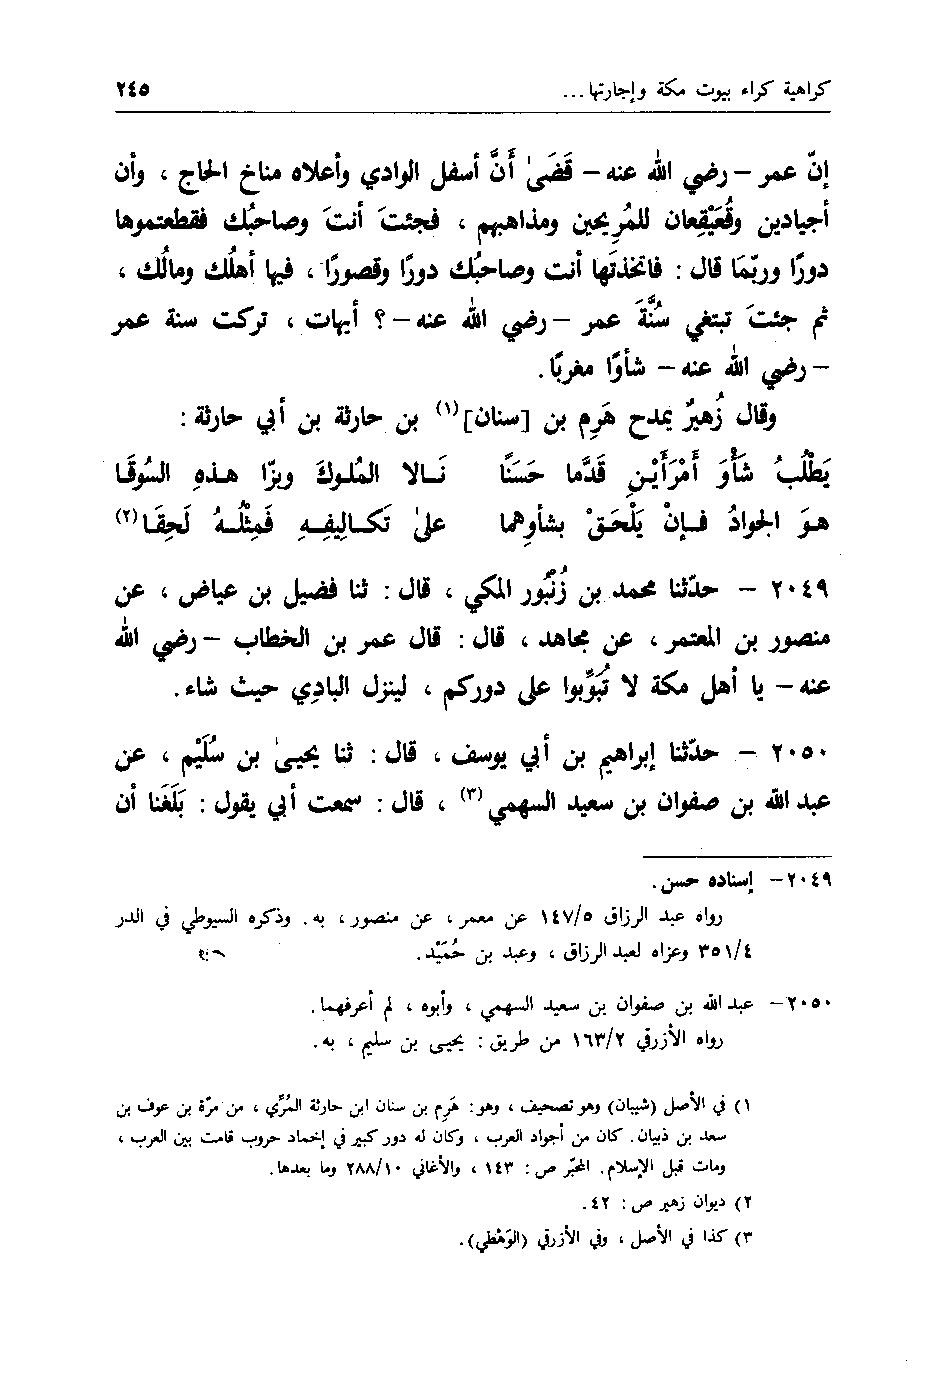 كراهية كراء بيوت مكة وإجارتها ...
٢٤٥
إنّ عمر - رضي الله عنه - قَضَىٰ أَنَّ أسفل الوادي وأعلاه مناخ الحاج ، وأن
أجيادين وقُعَيْقِعان للمُرِيحين ومذاهبهم ، فجئتَ أنتَ وصاحبُك فقطعتموها
دورًا وربّمَا قال : فاتخذتَها أنت وصاحبُك دورًا وقصورًا ، فيها أهلُك ومالُك ،
ثم جئتَ تبتغي سُنَّةَ عمر - رضي الله عنه - ؟ أيهات ، تركت سنة عمر
- رضي الله عنه - شأوًا مغربًا.
وقال زُهيرٌ يمدح هَرِم بن [سنان](١) بن حارثة بن أبي حارثة :
يَطْلُبُ شَأْوَ أمْرَأَيْـنِ قَدَّما حَسَنًا نَــالا المُلـوكَ وبزّا هـذهِ السُّوقَـا
هـوَ الجَوادُ فـإنْ يَلْحَقْ بشأوِهما علىٰ تَكـاليفِــهِ فَمِثْلُــهُ لَحِقَـا(٢)
٢٠٤٩ - حدّثنا محمد بن زُنْبُور المكي ، قال : ثنا فضيل بن عياض ، عن
منصور بن المعتمر ، عن مجاهد ، قال : قال عمر بن الخطاب - رضي الله
عنه - يا أهل مكة لا تُبَوِّبوا على دوركم ، لينزل البادِي حيث شاء.
٢٠٥٠ - حدّثنا إبراهيم بن أبي يوسف ، قال : ثنا يحيـىٰ بن سُلَيْم ، عن
عبد الله بن صفوان بن سعيد السهمي(٣) ، قال : سمعت أبي يقول : بَلَغَنا أن
٢٠٤٩ - إسناده حسن.
رواه عبد الرزاق ١٤٧/٥ عن معمر ، عن منصور ، به. وذكره السيوطي في الدر
٣٥١/٤ وعزاه لعبد الرزاق ، وعبد بن حُمَيْد.
٢٠٥٠ - عبد الله بن صفوان بن سعيد السهمي ، وأبوه ، لم أعرفهما.
رواه الأزرقي ١٦٣/٢ من طريق : يحيـى بن سليم ، به.
١) في الأصل (شيبان) وهو تصحيف ، وهو : هَرِم بن سنان ابن حارثة المُرِّي ، من مرّة بن عوف بن
سعد بن ذبيان. كان من أجواد العرب ، وكان له دور كبير في إخماد حروب قامت بين العرب ،
ومات قبل الإسلام. المحبّر ص : ١٤٣ ، والأغاني ٢٨٨/١٠ وما بعدها.
٢) ديوان زهير ص : ٤٢.
٣) كذا في الأصل ، وفي الأزرقي (الوَهْطي).